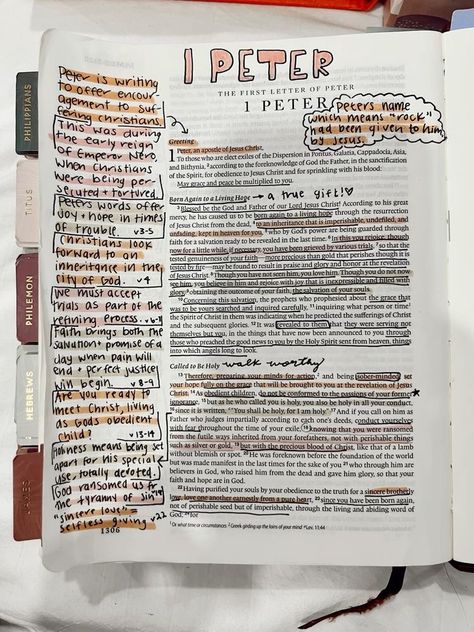 1 PETER
THE FIRST LETTER OF PETER
1 PETER
Peter's name
which means "rock"
had been given to him
by Jesus.
PHILIPPIANS
TITUS
PHILEMON
HEBREWS
JAMES
Peter is writing
to offer encour-
agement to suf-
fering christians.
This was during
the early reign
of Emperor Nero,
when Christians
were being per-
secuted + tortured.
Peter's words offer
joy + hope in times
of trouble. v3-5
Christians look
forward to an
inheritance in the
city of God. v4
we must accept
trials as part of the
refining process.
Faith brings both the
salvation + promise of a
day when pain will
end + perfect justice
will begin. v8-9
Are you ready to
meet Christ, living
as God's obedient
child? v13-14
Holiness means being set
apart for his special
use, totally devoted.
God ransomed us from
the tyranny of sin
"sincere love" =
selfless giving v22
1306
Greeting
Peter, an apostle of Jesus Christ,
To those who are elect exiles of the Dispersion in Pontus, Galatia, Cappadocia, Asia,
and Bithynia, ²according to the foreknowledge of God the Father, in the sanctification
of the Spirit, for obedience to Jesus Christ and for sprinkling with his blood:
May grace and peace be multiplied to you.
Born Again to a Living Hope → a true gift!♡
³ Blessed be the God and Father of our Lord Jesus Christ! According to his great
mercy, he has caused us to be born again to a living hope through the resurrection
of Jesus Christ from the dead, ⁴ to an inheritance that is imperishable, undefiled, and
unfading, kept in heaven for you, ⁵ who by God's power are being guarded through
faith for a salvation ready to be revealed in the last time. ⁶ In this you rejoice, though
now for a little while, if necessary, you have been grieved by various trials, ⁷ so that the
tested genuineness of your faith—more precious than gold that perishes though it is
tested by fire—may be found to result in praise and glory and honor at the revelation
of Jesus Christ. ⁸ Though you have not seen him, you love him. Though you do not now
see him, you believe in him and rejoice with joy that is inexpressible and filled with
glory, ⁹ obtaining the outcome of your faith, the salvation of your souls.
¹⁰ Concerning this salvation, the prophets who prophesied about the grace that
was to be yours searched and inquired carefully, ¹¹ inquiring what person or time¹
the Spirit of Christ in them was indicating when he predicted the sufferings of Christ
and the subsequent glories. ¹² It was revealed to them that they were serving not
themselves but you, in the things that have now been announced to you through
those who preached the good news to you by the Holy Spirit sent from heaven, things
into which angels long to look.
Called to Be Holy walk worthy
¹³ Therefore, preparing your minds for action,² and being sober-minded, set
your hope fully on the grace that will be brought to you at the revelation of Jesus
Christ. ¹⁴ As obedient children, do not be conformed to the passions of your former
ignorance, ¹⁵ but as he who called you is holy, you also be holy in all your conduct,
¹⁶ since it is written, "You shall be holy, for I am holy." ¹⁷ And if you call on him as
Father who judges impartially according to each one's deeds, conduct yourselves
with fear throughout the time of your exile, ¹⁸ knowing that you were ransomed
from the futile ways inherited from your forefathers, not with perishable things
such as silver or gold, ¹⁹ but with the precious blood of Christ, like that of a lamb
without blemish or spot. ²⁰ He was foreknown before the foundation of the world
but was made manifest in the last times for the sake of you ²¹ who through him are
believers in God, who raised him from the dead and gave him glory, so that your
faith and hope are in God.
²² Having purified your souls by your obedience to the truth for a sincere brotherly
love, love one another earnestly from a pure heart, ²³ since you have been born again,
not of perishable seed but of imperishable, through the living and abiding word of
God; ²⁴ for
1 Or what time or circumstances 2 Greek girding up the loins of your mind * Lev. 11:44